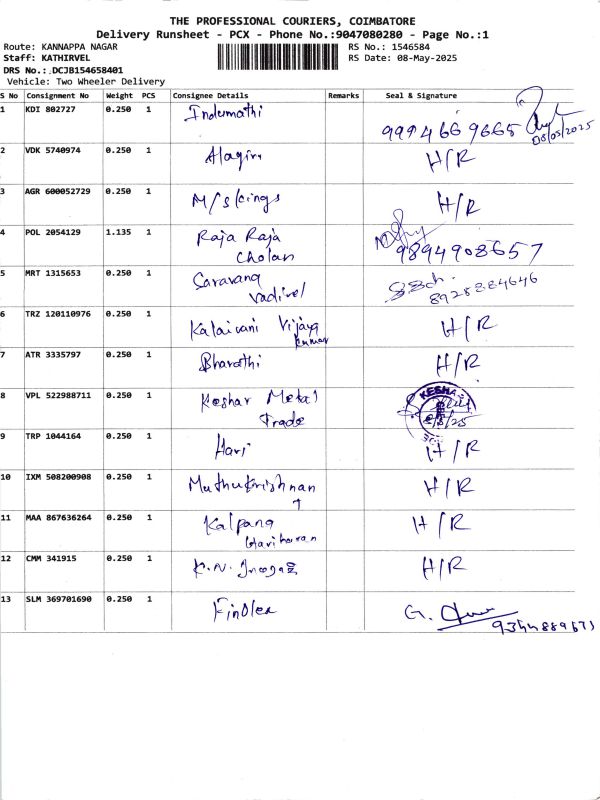 THE PROFESSIONAL COURIERS, COIMBATORE
Delivery Runsheet - PCX - Phone No.:9047080280 - Page No.:1
Route: KANNAPPA NAGAR RS No.: 1546584
Staff: KATHIRVEL RS Date: 08-May-2025
DRS No.: DCJB154658401
Vehicle: Two Wheeler Delivery
S No Consignment No Weight PCS Consignee Details Remarks Seal & Signature
1 KDI 802727 0.250 1 Indumathi 9994669665 08/05/2025
2 VDK 5740974 0.250 1 Alagiri H/R
3 AGR 600052729 0.250 1 M/s kings H/R
4 POL 2054129 1.135 1 Raja Raja 9894908657
Cholan
5 MRT 1315653 0.250 1 Saravana 8928884646
Vadivel
6 TRZ 120110976 0.250 1 Kalaivani Vijaya H/R
kumar
7 ATR 3335797 0.250 1 Bharathi H/R
8 VPL 522988711 0.250 1 Keshar Metal KESHA
Trade
9 TRP 1044164 0.250 1 Hari H/R
10 IXM 508200908 0.250 1 Muthukrishnan H/R
11 MAA 867636264 0.250 1 Kalpana H/R
Hariharan
12 CMM 341915 0.250 1 K.N. H/R
13 SLM 369701690 0.250 1 Finolex G.